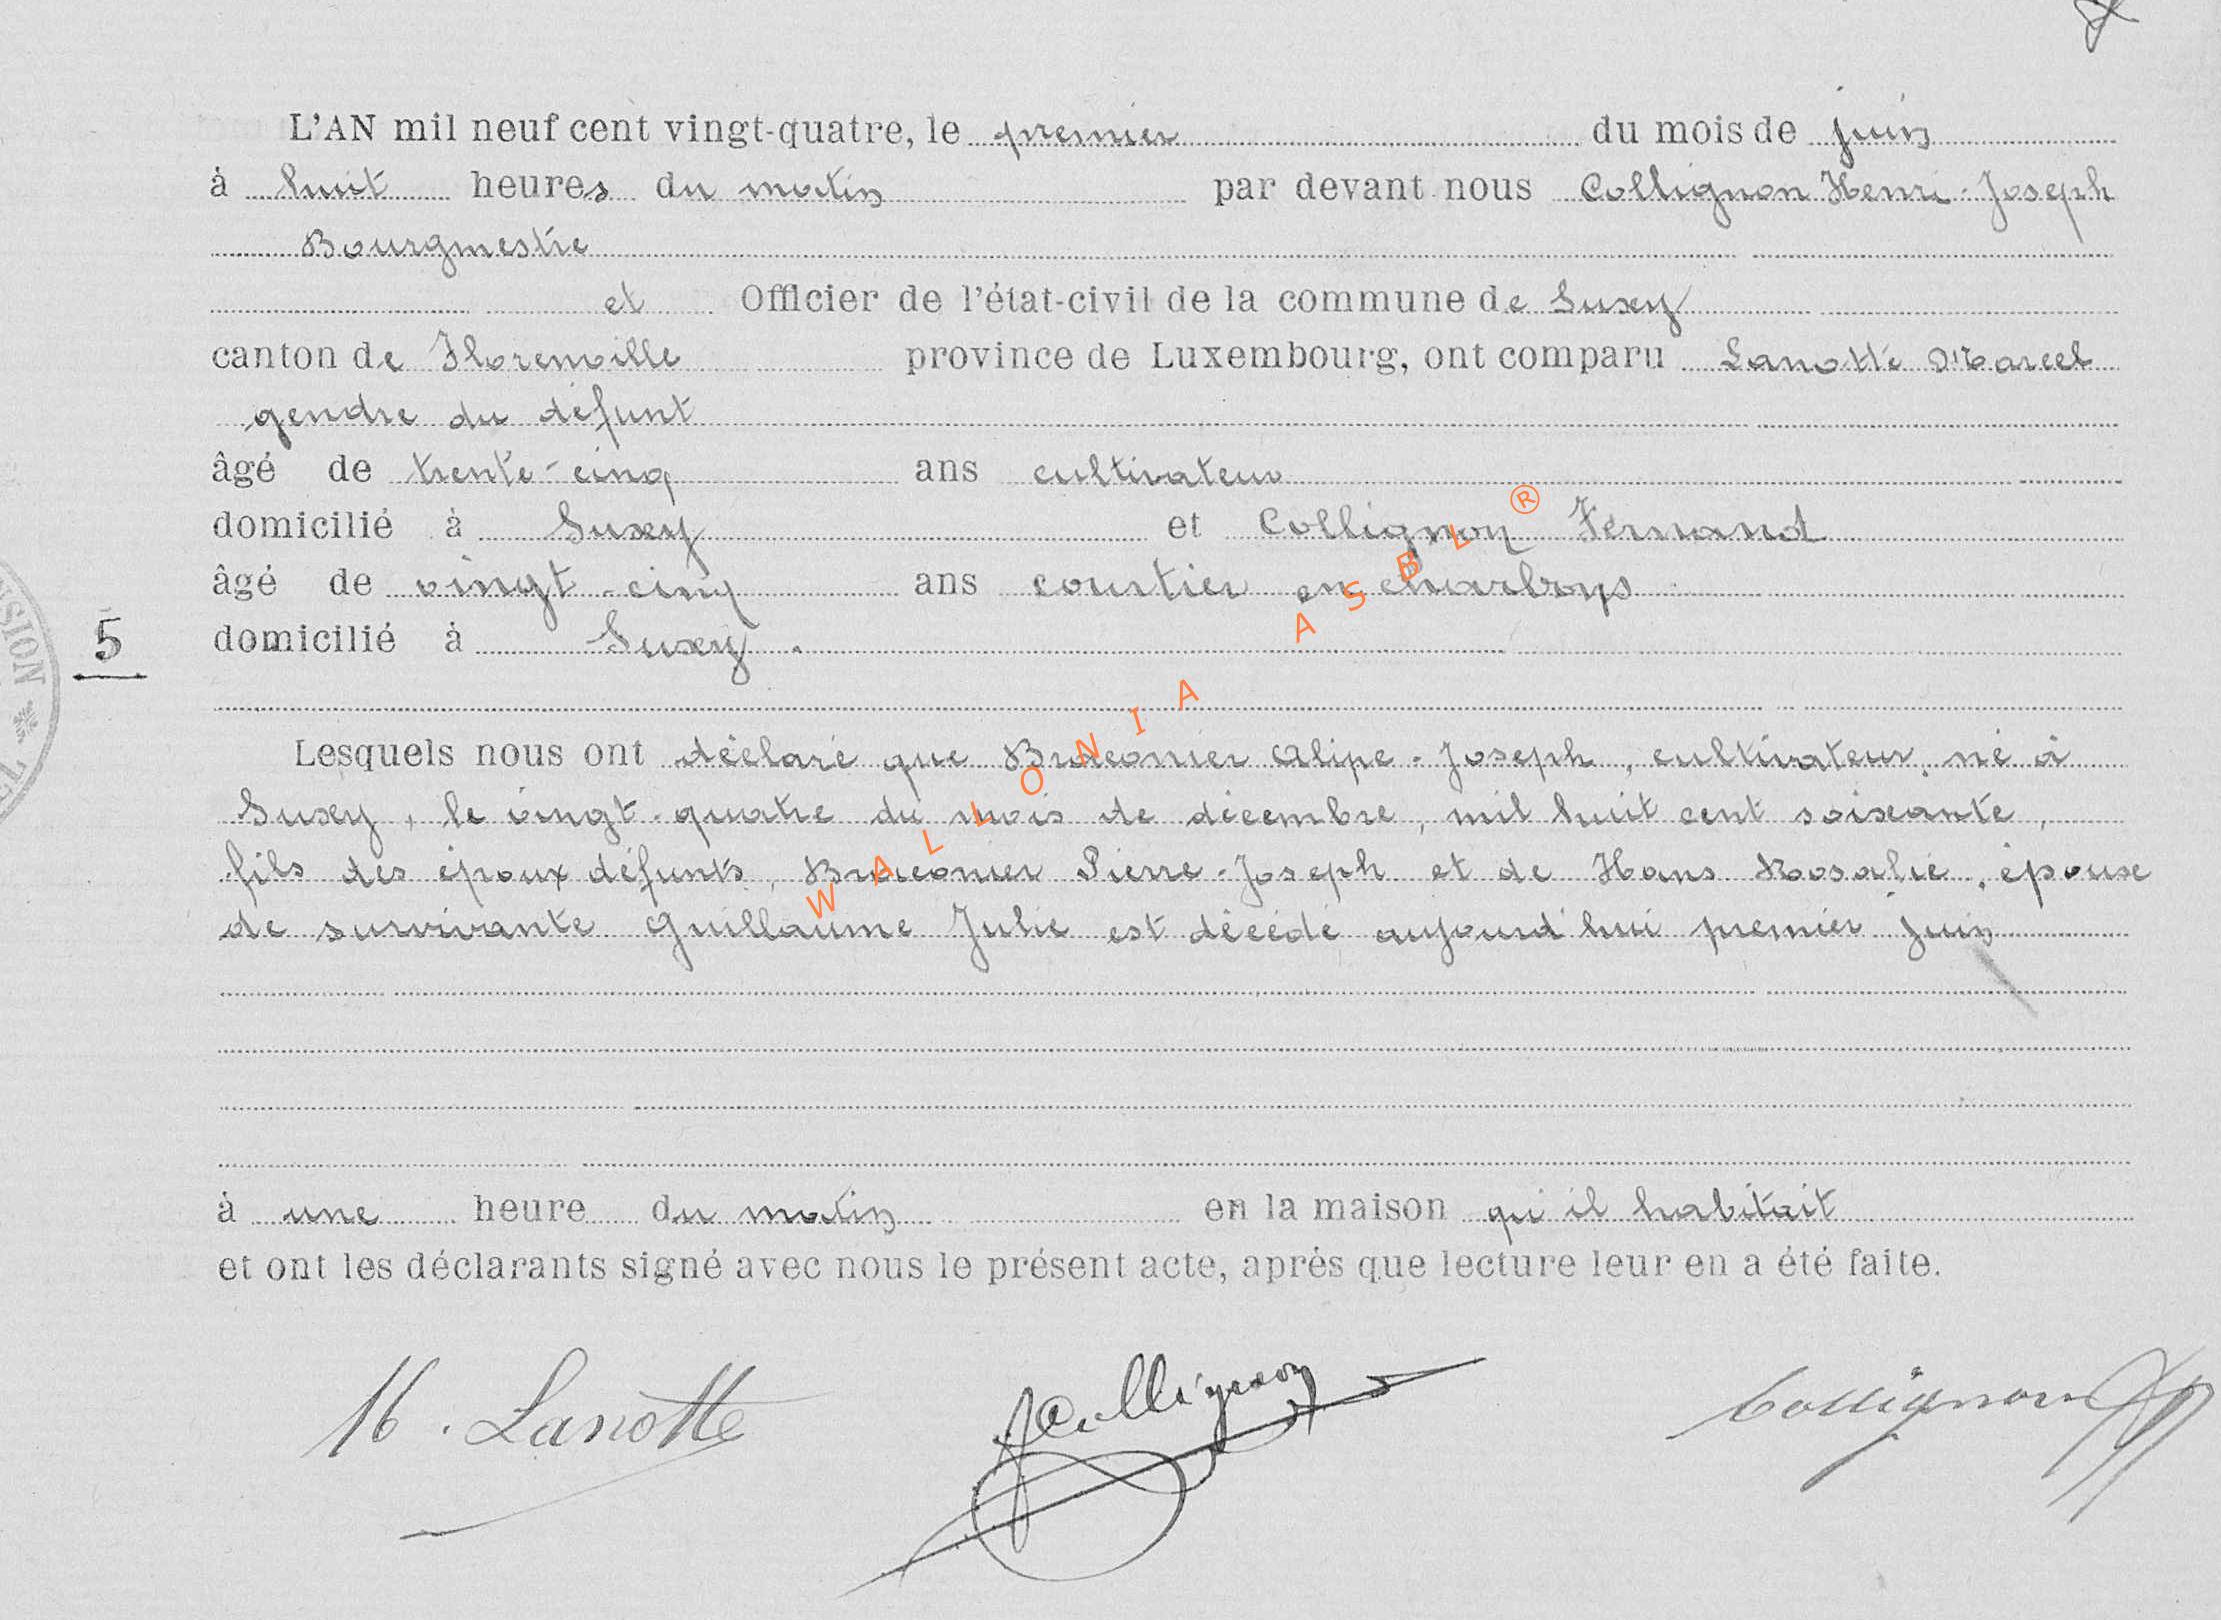 L'AN mil neuf cent vingt-quatre, le premier du mois de juin
à huit heures du matin par devant nous Collignon Henri-Joseph
Bourgmestre
et Officier de l'état-civil de la commune de Suxy
canton de Florenville province de Luxembourg, ont comparu Lanotte Marcel
gendre du défunt
âgé de trente-cinq ans cultivateur
domicilié à Suxy et Collignon Fernand
âgé de vingt-cinq ans courtier en charbons
5 domicilié à Suxy.
Lesquels nous ont déclaré que Braconnier Alipe-Joseph, cultivateur, né à
Suxy, le vingt-quatre du mois de décembre, mil huit cent soixante,
fils des époux défunts, Braconnier Pierre-Joseph et de Hans Rosalie, épouse
de survivante Guillaume Julie est décédé aujourd'hui premier juin
à une heure du matin en la maison qu'il habitait
et ont les déclarants signé avec nous le présent acte, après que lecture leur en a été faite.
M. Lanotte Collignon Collignon
WALLONIA ASBL ®